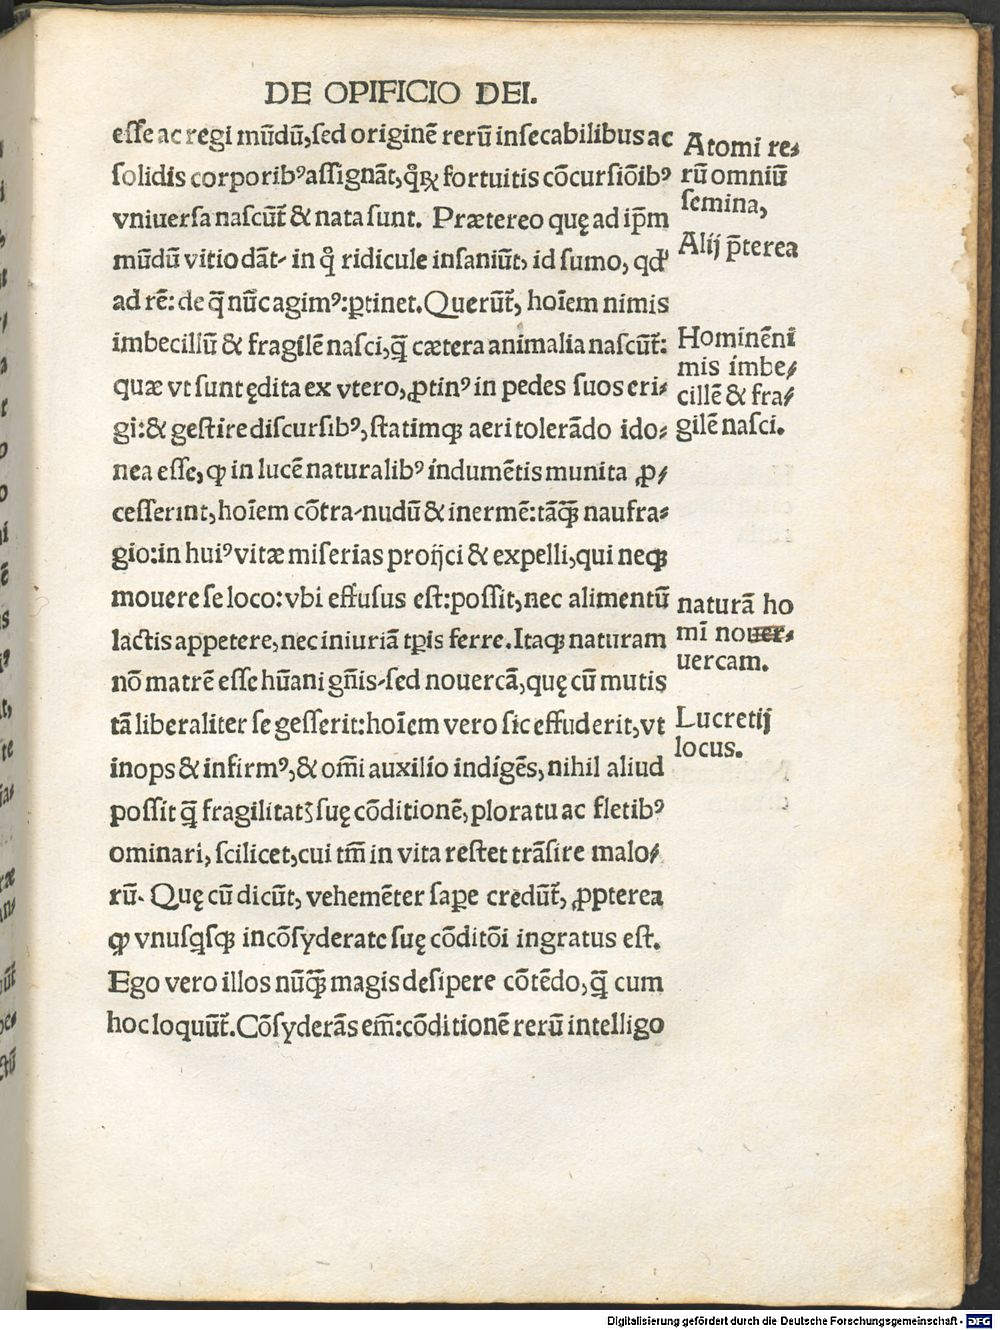 DE OPIFICIO DEI.
eſſe ac regi mūdū,ſed originē rerū inſecabilibus ac
ſolidis corporibꝰ aſſignāt, fortuitis cōcurſiōibꝰ
vniuerſa naſcūt̃ & nata ſunt. Prætereo quę ad ip̄m
mūdū vitio dāt, in ridicule inſaniūt, id ſumo, qd'
ad rē: de q̄ nūc agimꝰ: ꝑtinet. Querūt̃, hoīem nimis
imbecillū & fragilē naſci, q̄ cætera animalia naſcūt̃:
quæ vt ſunt ędita ex vtero, ꝓtinꝰ in pedes ſuos eri-
gi: & geſtire diſcurſibꝰ, ſtatimqꝫ aeri tolerādo ido-
nea eſſe, ꝙ in lucē naturalibꝰ indumētis munita ꝓ-
ceſſerint, hoīem cōtra, nudū & inermē: tāꝗꝫ naufra-
gio: in huiꝰ vitæ miſerias proijci & expelli, qui neqꝫ
mouere ſe loco: vbi effuſus eſt: poſſit, nec alimentū
lactis appetere, nec iniuriā tꝑis ferre. Itaqꝫ naturam
nō matrē eſſe hūani gñis, ſed nouercā, quę cū mutis
tā liberaliter ſe geſſerit: hoīem vero ſic effuderit, vt
inops & infirmꝰ, & om̄i auxilio indigēs, nihil aliud
poſſit q̄ fragilitatꝫ ſuę cōditionē, ploratu ac fletibꝰ
ominari, ſcilicet, cui tm̄ in vita reſtet trāſire malo-
rū. Quę cū dicūt, vehemēter ſaꝑe credūt̃, ꝓpterea
ꝙ vnuſqſqꝫ incōſyderate ſuę cōditōi ingratus eſt.
Ego vero illos nūꝗꝫ magis deſipere cōtēdo, q̄ cum
hoc loquūt̃. Cōſyderās em̄: cōditionē rerū intelligo
Atomi re-
rū omniū
ſemina,
Alij p̄terea
Hominē ni
mis imbe-
cillē & fra-
gilē naſci.
naturā ho
mī nouer-
uercam.
Lucretij
locus.
Digitalisierung gefördert durch die Deutsche Forschungsgemeinschaft - DFG